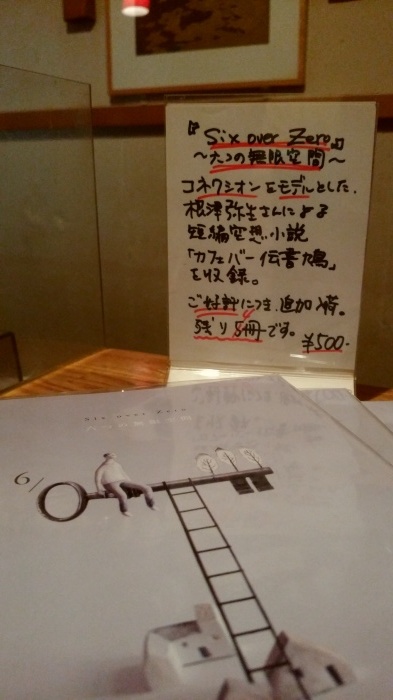 『Six over Zero』
〜六つの無限空間〜
コネクシオンをモデルとした、
根津弥生さんによる
短編空想小説
「カフェバー伝書鳩」
を収録。
ご好評につき、追加入荷。
残り5冊です。
¥500-
Six over Zero
六つの無限空間
6/